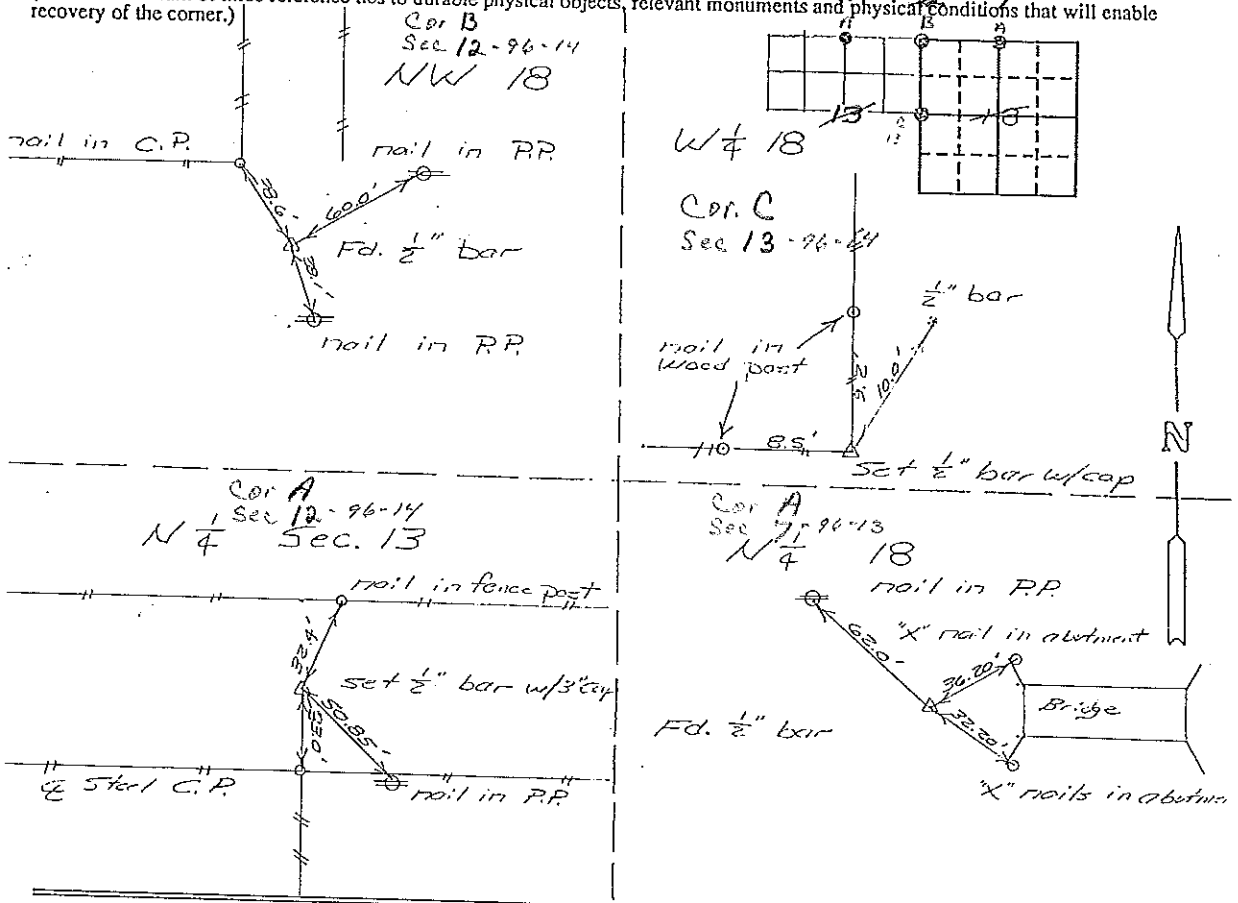 of three reference ties to durable physical objects, relevant monuments and physical conditions that will enable
recovery of the corner.)
Cor B
Sec 12-96-14
NW 18
nail in C.P.
nail in P.P.
60.0'
Fd. 1/2" bar
nail in P.P.
A
B
A
13
18
12
13
W 1/4 18
Cor. C
Sec 13-96-14
1/2" bar
nail in
wood post
10.0'
8.5'
Set 1/2" bar w/cap
N
Cor A
Sec 12-96-14
N 1/4 Sec. 13
nail in fence post
32.4'
set 1/2" bar w/3" cap
33.0'
50.85'
℄ Steel C.P.
nail in P.P.
Cor A
Sec 7-96-13
N 1/4 18
nail in P.P.
"X" nail in abutment
36.20'
Bridge
32.20'
Fd. 1/2" bar
"X" nails in abutm